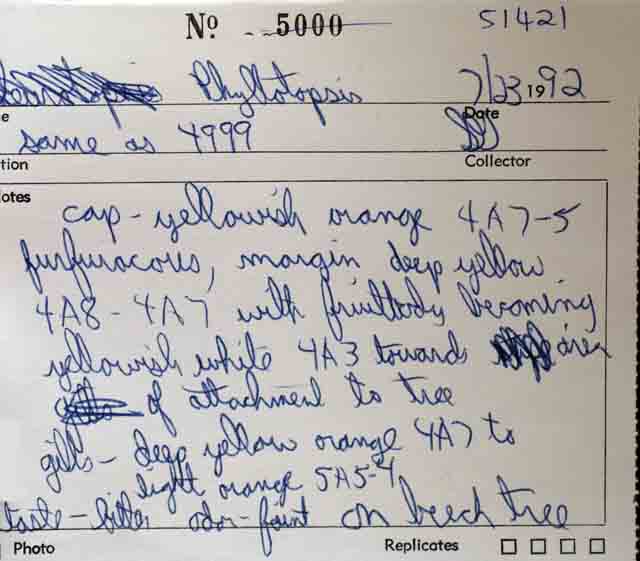 Nº 5000 51421
Phyllotopsis 7/23 1992
e Date
same as 4999
tion Collector
otes
cap - yellowish orange 4A7-5
furfuracous, margin deep yellow
4A8 - 4A7 with fruitbody becoming
yellowish white 4A3 towards area
of attachment to tree
gills - deep yellow orange 4A7 to
light orange 5A5-4
taste - bitter odor - faint on beech tree
Photo Replicates